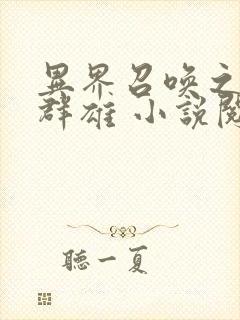 異界召喚之
群雄 小說閱
聽一夏